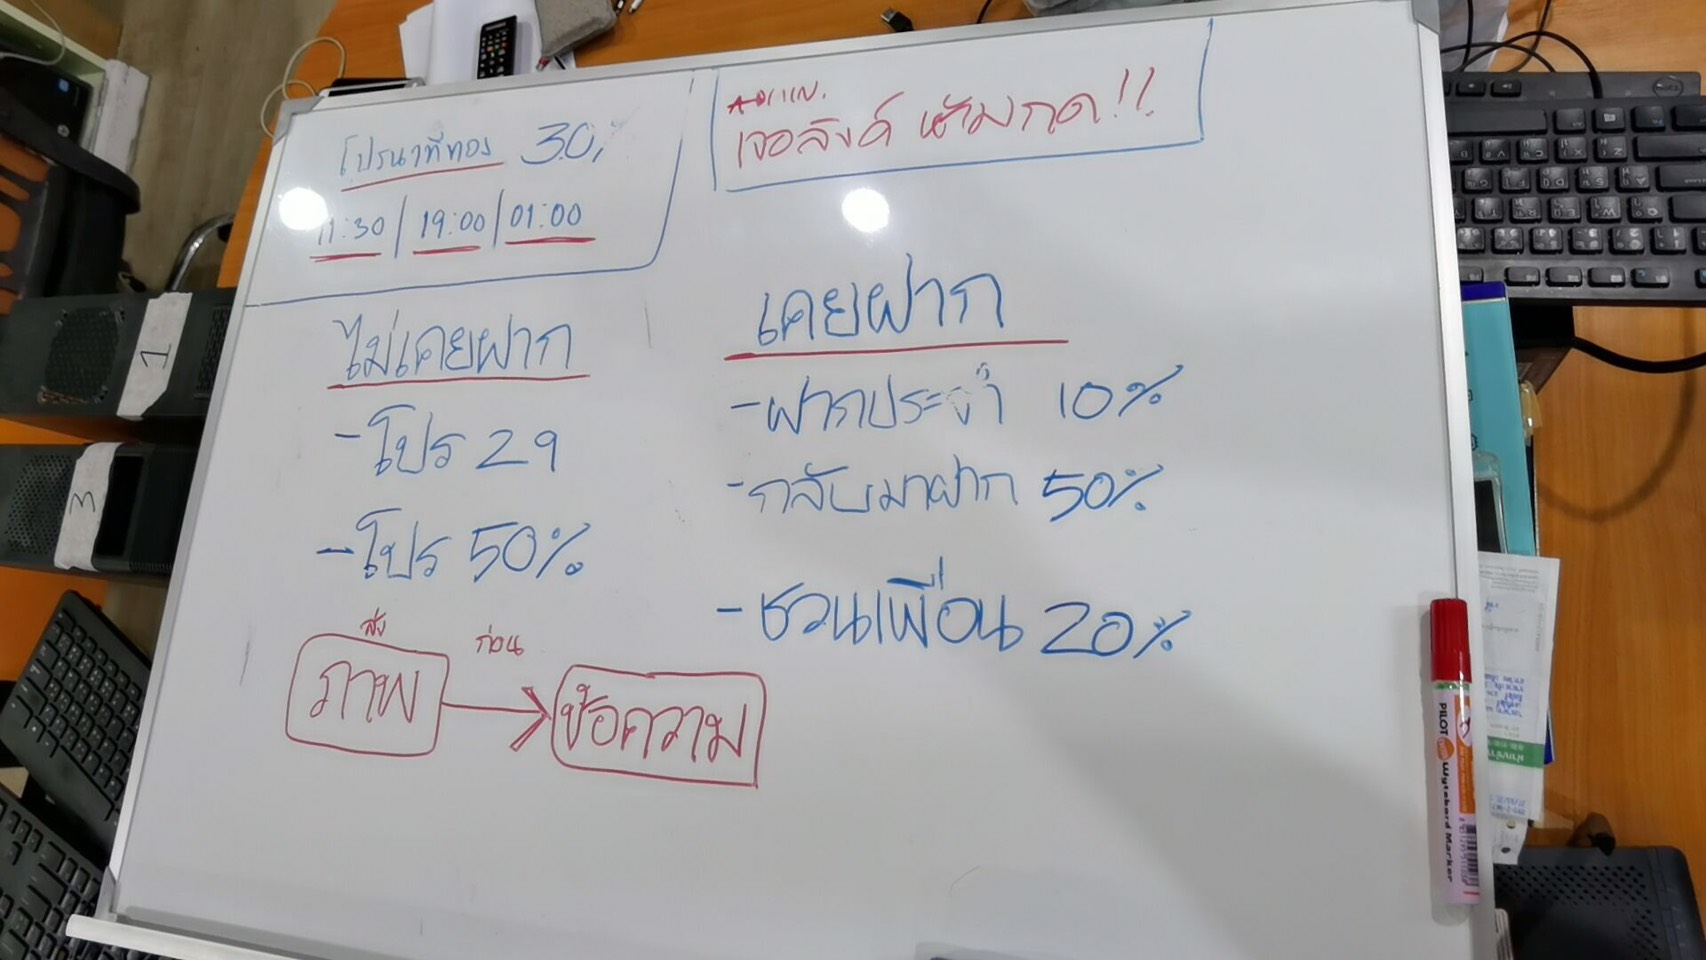 โปรนาทีทอง 30%
11:30 | 19:00 | 01:00
เจอลิงค์ ห้ามกด!!
ไม่เคยฝาก
- โปร 29
- โปร 50%
เคยฝาก
- ฝากประจำ 10%
- กลับมาฝาก 50%
- ชวนเพื่อน 20%
ส่ง ก่อน
ภาพ → ข้อความ
1
3
PILOT Wyteboard Marker